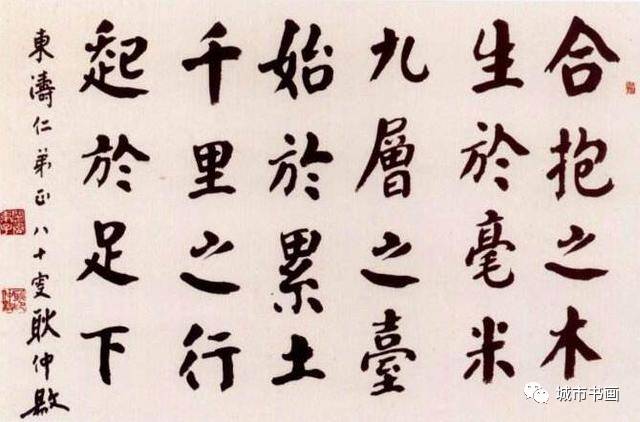 合抱之木
生於毫米
九層之臺
始於累土
千里之行
起於足下
東濤仁弟正八十叟耿仲敭
城市书画